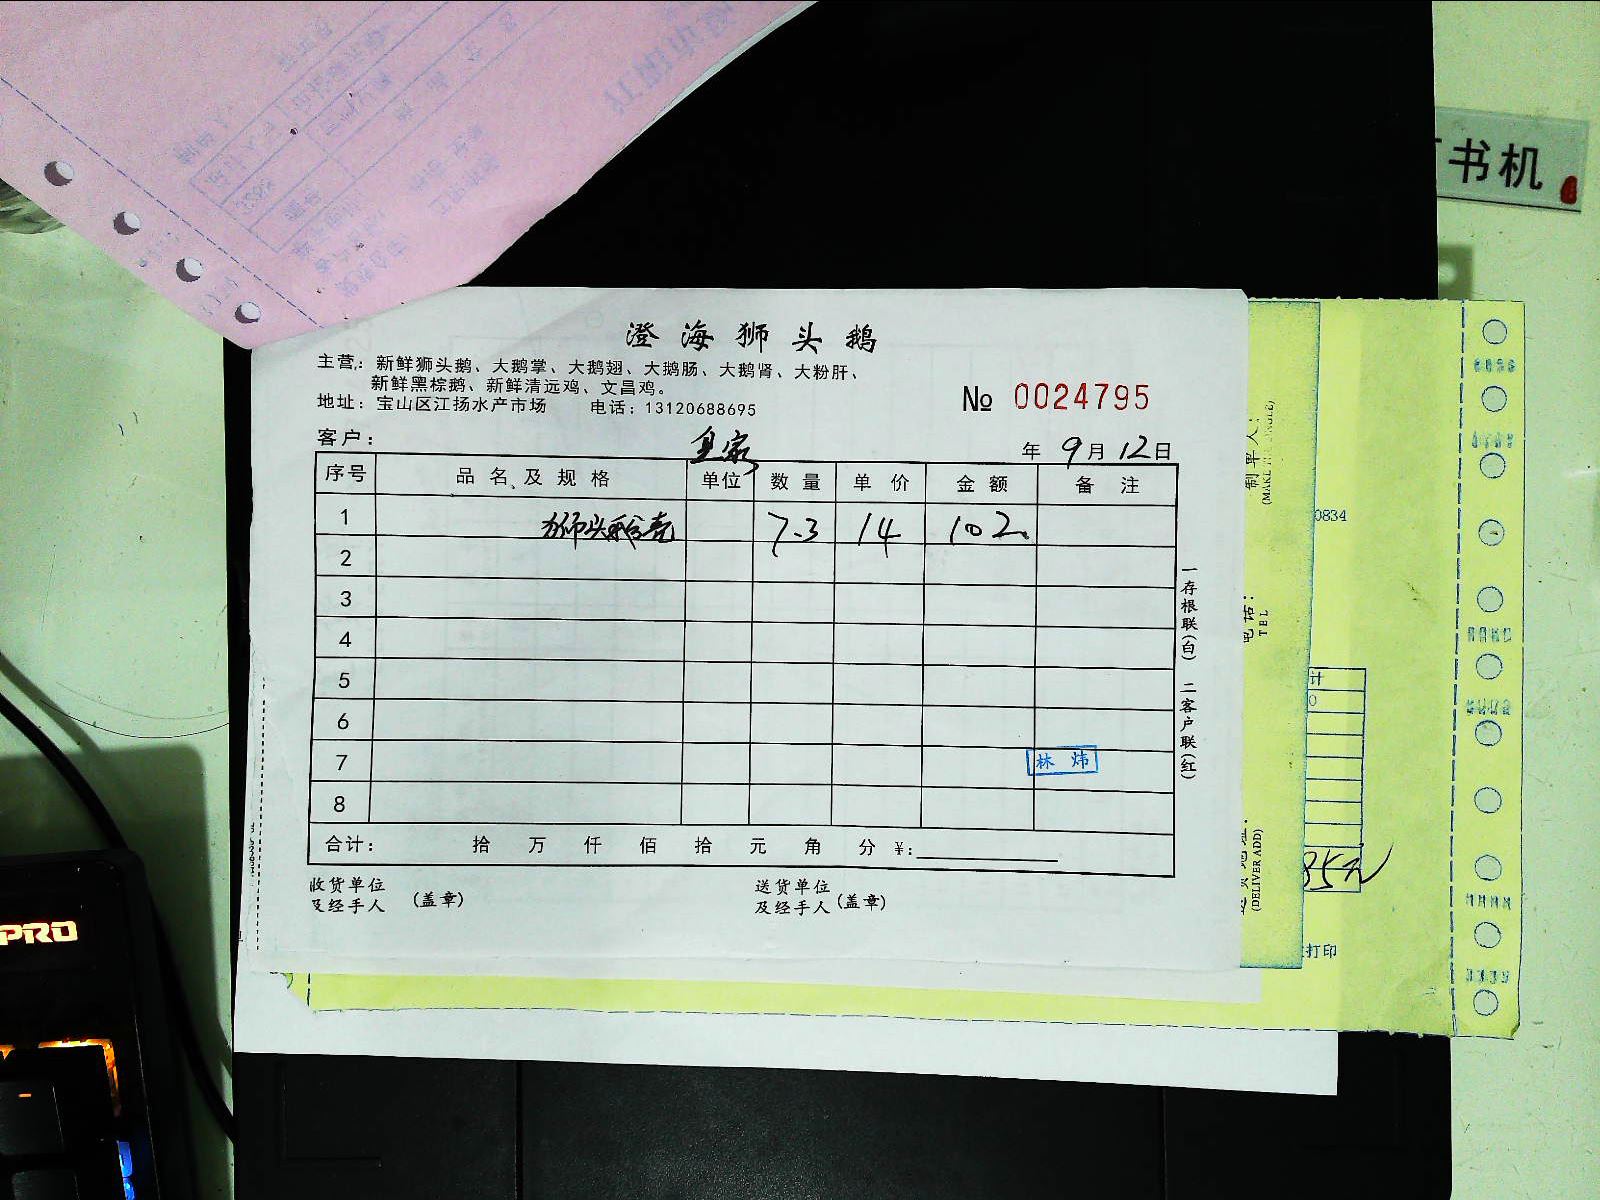 书机
澄海狮头鹅
主营：新鲜狮头鹅、大鹅掌、大鹅翅、大鹅肠、大鹅肾、大粉肝、
新鲜黑棕鹅、新鲜清远鸡、文昌鸡。
地址：宝山区江扬水产市场 电话：13120688695
№ 0024795
客户： 皇家 年 9月 12日
序号 品名及规格 单位 数量 单价 金额 备注
1 狮头 7.3 14 102
2
3
4
5
6
7 林炜
8
合计： 拾 万 仟 佰 拾 元 角 分 ¥：
收货单位
及经手人 （盖章）
送货单位
及经手人（盖章）
一存根联(白) 二客户联(红)
制单人
电话：
TEL
(DELIVER ADD)
0834
计
0
85元
打印
PRO